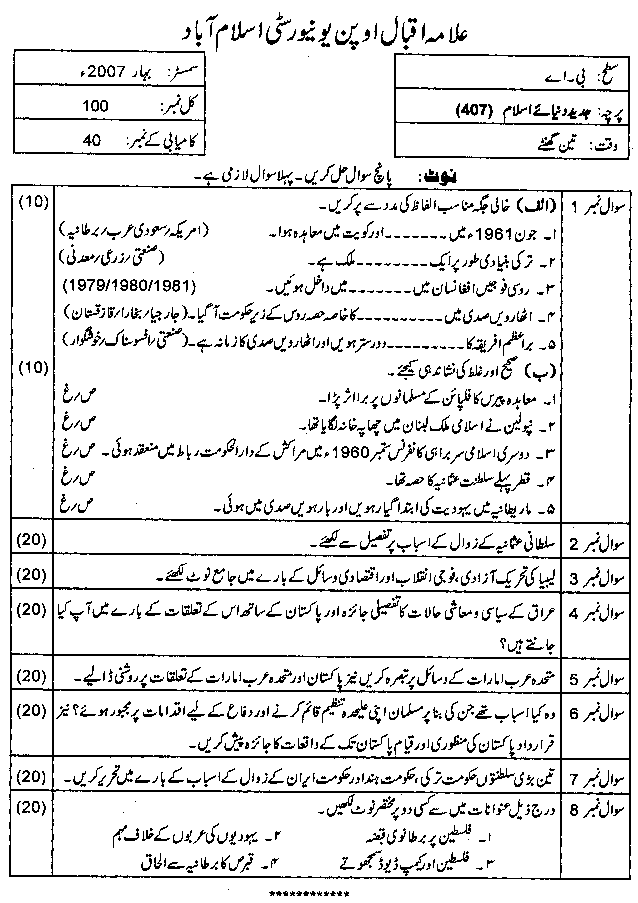 علامہ اقبال اوپن یونیورسٹی اسلام آباد
سطح: بی۔اے
سمسٹر: بہار 2007ء
پرچہ: جدید دنیائے اسلام (407)
کل نمبر: 100
وقت: تین گھنٹے
کامیابی کے نمبر: 40
نوٹ: پانچ سوال حل کریں۔ پہلا سوال لازمی ہے۔
سوال نمبر 1 (الف) خالی جگہ مناسب الفاظ کی مدد سے پر کریں۔ (10)
۱۔ جون 1961ء میں ۔۔۔۔۔۔۔ اور کویت میں معاہدہ ہوا۔ (امریکہ/سعودی عرب/برطانیہ)
۲۔ ترکی بنیادی طور پر ایک ۔۔۔۔۔۔۔۔۔ ملک ہے۔ (صنعتی/زرعی/معدنی)
۳۔ روسی فوجیں افغانستان میں ۔۔۔۔۔۔۔ میں داخل ہوئیں۔ (1979/1980/1981)
۴۔ اٹھارویں صدی میں ۔۔۔۔۔۔۔۔۔۔ کا خاصہ حصہ روس کے زیر حکومت آ گیا۔ (جارجیا/بخارا/قازقستان)
۵۔ براعظم افریقہ کا ۔۔۔۔۔۔۔۔۔ دور سترہویں اور اٹھارویں صدی کا زمانہ ہے۔ (صنعتی/افسوسناک/خوشگوار)
(ب) صحیح اور غلط کی نشاندہی کیجئے۔ (10)
۱۔ معاہدہ پیرس کا فلپائن کے مسلمانوں پر برا اثر پڑا۔ ص/غ
۲۔ نپولین نے اسلامی ملک لبنان میں چھاپہ خانہ لگایا تھا۔ ص/غ
۳۔ دوسری اسلامی سربراہی کانفرنس ستمبر 1960ء میں مراکش کے دارالحکومت رباط میں منعقد ہوئی۔ ص/غ
۴۔ قطر پہلے سلطنت عثمانیہ کا حصہ تھا۔ ص/غ
۵۔ ماریطانیہ میں یہودیت کی ابتدا گیارہویں اور بارہویں صدی میں ہوئی۔ ص/غ
سوال نمبر 2 سلطانی عثمانیہ کے زوال کے اسباب پر تفصیل سے لکھئے۔ (20)
سوال نمبر 3 لیبیا کی تحریک آزادی، فوجی انقلاب اور اقتصادی وسائل کے بارے میں جامع نوٹ لکھئے۔ (20)
سوال نمبر 4 عراق کے سیاسی و معاشی حالات کا تفصیلی جائزہ اور پاکستان کے ساتھ اس کے تعلقات کے بارے میں آپ کیا (20)
جانتے ہیں؟
سوال نمبر 5 متحدہ عرب امارات کے وسائل پر تبصرہ کریں نیز پاکستان اور متحدہ عرب امارات کے تعلقات پر روشنی ڈالیے۔ (20)
سوال نمبر 6 وہ کیا اسباب تھے جن کی بنا پر مسلمان اپنی علیحدہ تنظیم قائم کرنے اور دفاع کے لیے اقدامات پر مجبور ہوئے؟ نیز (20)
قرارداد پاکستان کی منظوری اور قیام پاکستان تک کے واقعات کا جائزہ پیش کریں۔
سوال نمبر 7 تین بڑی سلطنتوں حکومت ترکی، حکومت ہند اور حکومت ایران کے زوال کے اسباب کے بارے میں تحریر کریں۔ (20)
سوال نمبر 8 درج ذیل عنوانات میں سے کسی دو پر مختصر نوٹ لکھیں۔ (20)
۱۔ فلسطین پر برطانوی قبضہ ۲۔ یہودیوں کی عربوں کے خلاف مہم
۳۔ فلسطین اور کیمپ ڈیوڈ سمجھوتے ۴۔ قبرص کا برطانیہ سے الحاق
************